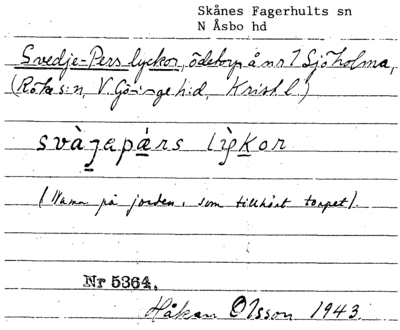 Skånes Fagerhults sn
N Åsbo hd
Svedje-Pers lyckor, ödetorp å nr 7 Sjöholma,
(Röke s:n, V. Göinge h:d, Kristl.)
svàgapærs lykor
(Namn på jorden, som tillhört torpet).
Nr 5364.
Håkan Olsson 1943.